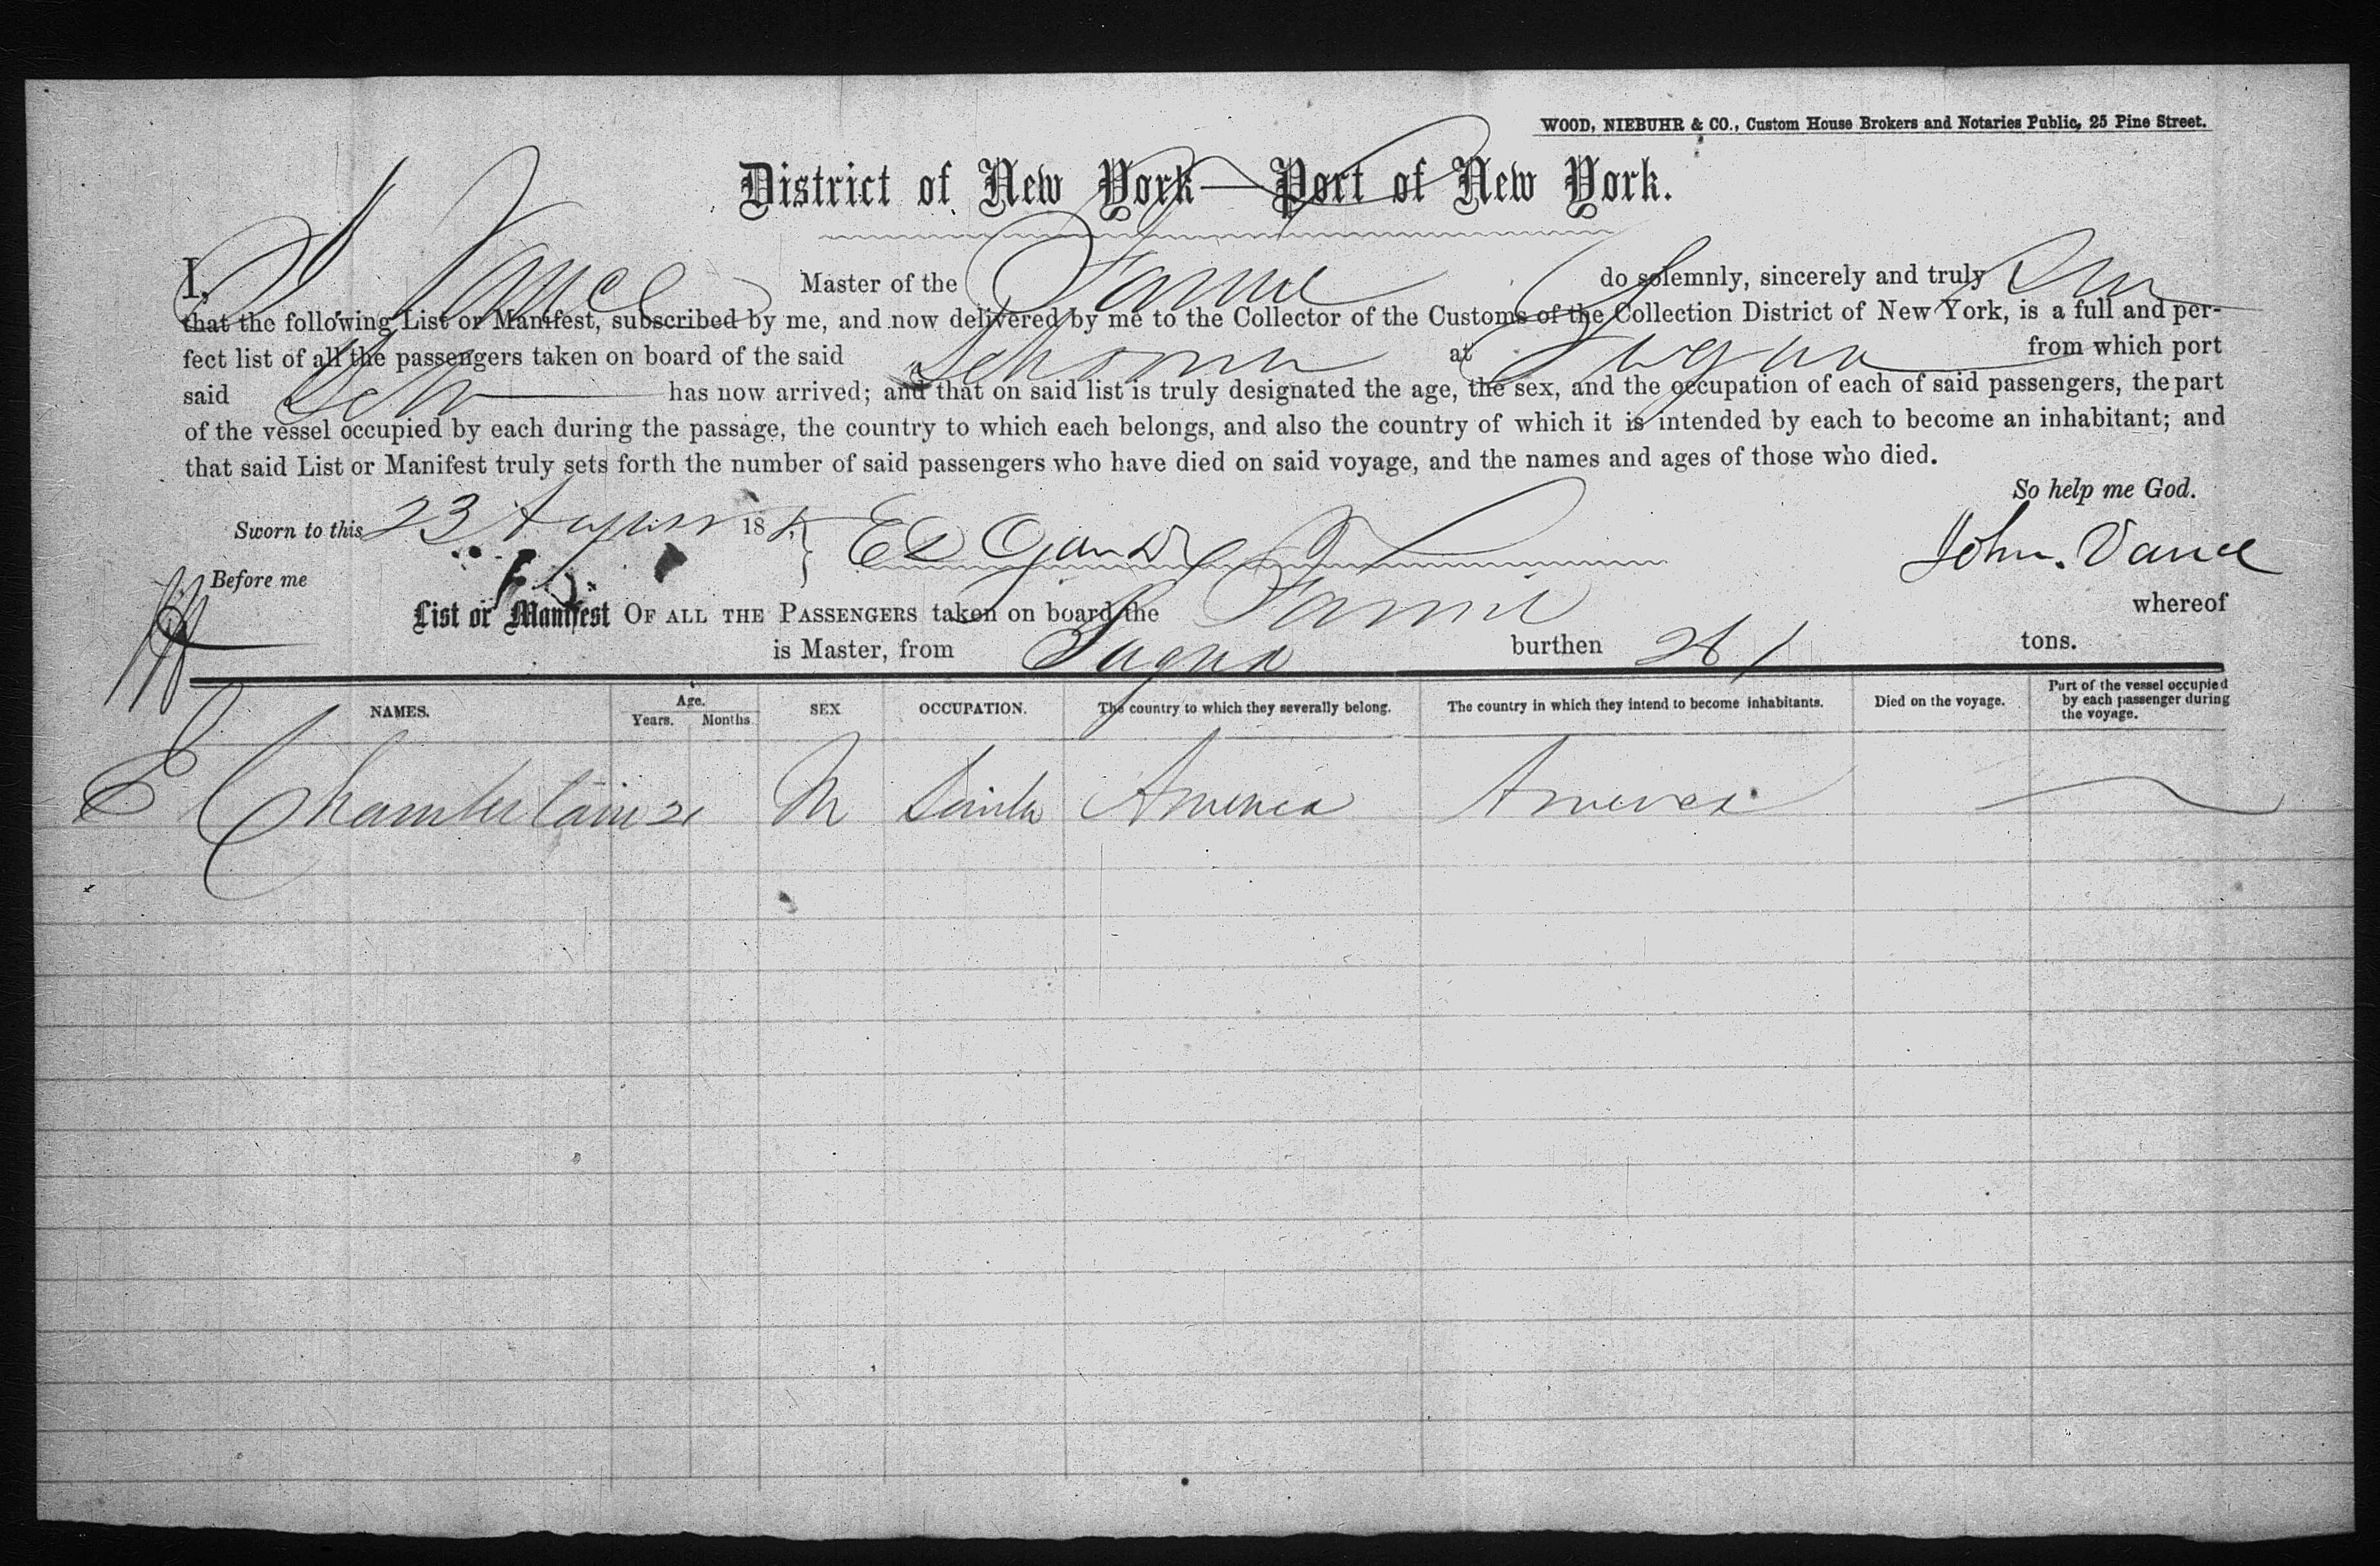 WOOD, NIEBUHR & CO., Custom House Brokers and Notaries Public, 25 Pine Street.
District of New York—Port of New York.
I, J Vance Master of the do solemnly, sincerely and truly
that the following List or Manifest, subscribed by me, and now delivered by me to the Collector of the Customs of the Collection District of New York, is a full and per-
fect list of all the passengers taken on board of the said at Sagua from which port
said Schr has now arrived; and that on said list is truly designated the age, the sex, and the occupation of each of said passengers, the part
of the vessel occupied by each during the passage, the country to which each belongs, and also the country of which it is intended by each to become an inhabitant; and
that said List or Manifest truly sets forth the number of said passengers who have died on said voyage, and the names and ages of those who died.
So help me God.
Sworn to this 23 August 188
John Vance
Before me
List or Manifest OF ALL THE PASSENGERS taken on board the whereof
is Master, from Sagua burthen tons.
NAMES. Age. Years. Months. SEX OCCUPATION. The country to which they severally belong. The country in which they intend to become inhabitants. Died on the voyage. Part of the vessel occupied by each passenger during the voyage.
E Chamberlain 21 M America America